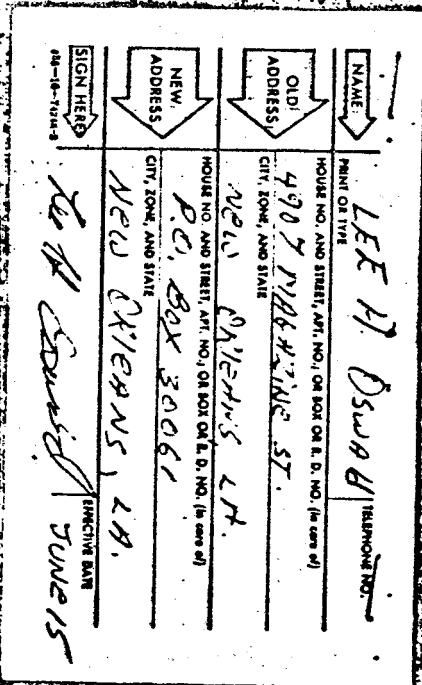 NAME:
PRINT OR TYPE
TELEPHONE NO.
LEE H. OSWALD
OLD ADDRESS
HOUSE NO. AND STREET, APT. NO., OR BOX OR R. D. NO. (In care of)
4907 MAGAZINE ST.
CITY, ZONE, AND STATE
NEW ORLEANS LA.
NEW ADDRESS
HOUSE NO. AND STREET, APT. NO., OR BOX OR R. D. NO. (In care of)
P.O. BOX 30061
CITY, ZONE, AND STATE
NEW ORLEANS, LA.
SIGN HERE
EFFECTIVE DATE
Lee H Oswald
JUNE 15